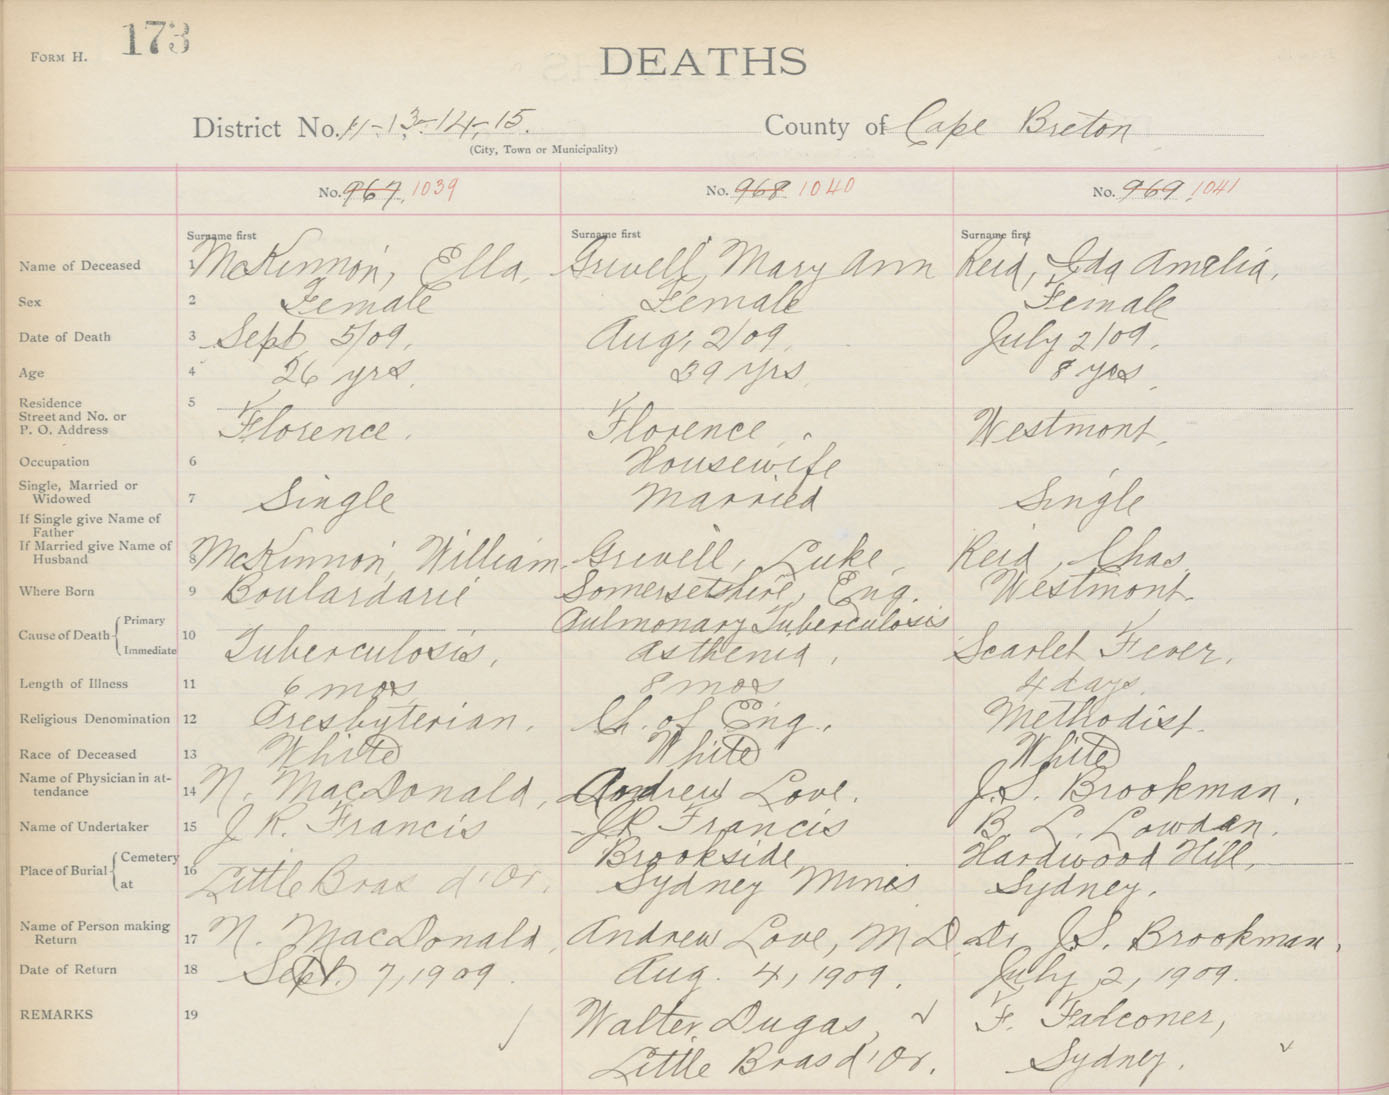 FORM H. 173
DEATHS
District No. 11-13-14-15. County of Cape Breton
(City, Town or Municipality)
No. 967 1039 No. 968 1040 No. 969 1041
Surname first Surname first Surname first
Name of Deceased 1 McKinnon, Ella, Grevell, Mary Ann Reid, Ida Amelia,
Sex 2 Female Female Female
Date of Death 3 Sept 5/09, Aug, 2/09, July 2/09,
Age 4 26 yrs, 39 yrs, 8 yrs,
Residence 5
Street and No. or
P. O. Address Florence. Florence, Westmont,
Occupation 6 Housewife
Single, Married or
Widowed 7 Single Married Single
If Single give Name of
Father
If Married give Name of
Husband 8 McKinnon, William Grevell, Luke, Reid, Chas.
Where Born 9 Boulardarie Somersetshire, Eng. Westmont.
Cause of Death Primary Pulmonary Tuberculosis
Immediate 10 Tuberculosis, Asthenia, Scarlet Fever,
Length of Illness 11 6 mos 8 mos 4 days,
Religious Denomination 12 Presbyterian. Ch. of Eng., Methodist.
Race of Deceased 13 White White White
Name of Physician in at-
tendance 14 N. MacDonald, Andrew Love. J.S. Brookman,
Name of Undertaker 15 J R. Francis J R Francis B. L. Lowden.
Place of Burial Cemetery 16 Brookside, Hardwood Hill,
at Little Bras d'Or, Sydney Mines Sydney,
Name of Person making
Return 17 N. MacDonald, Andrew Love, M D, Dr J.S. Brookman,
Date of Return 18 Sept. 7, 1909 Aug. 4, 1909, July 2, 1909.
REMARKS 19 Walter Dugas, F. Falconer,
Little Bras d'Or. Sydney.